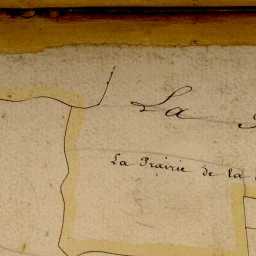 La
La Prairie de la